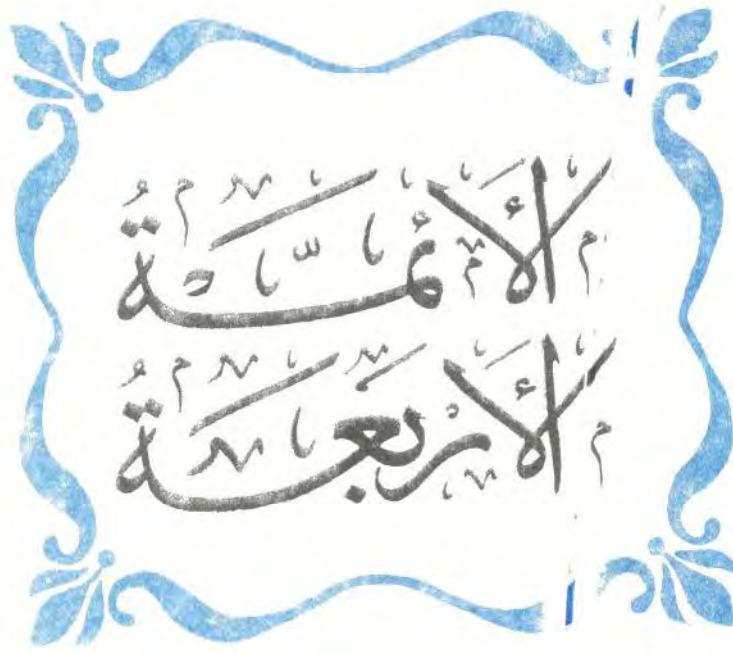 الأئمة
الأربعة